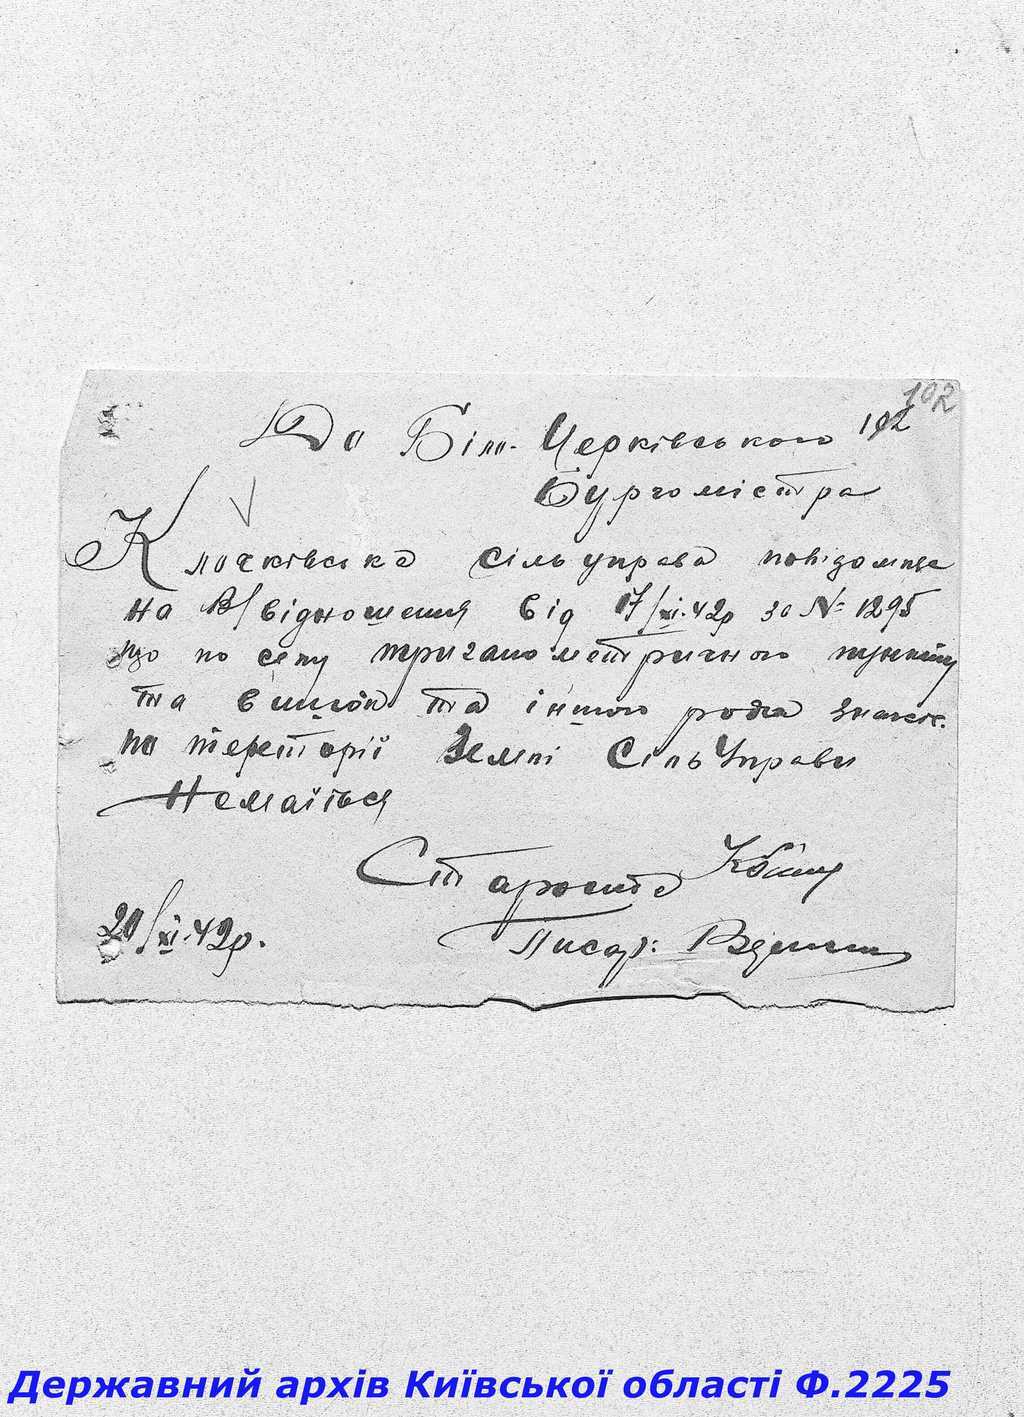 102
До Біло-Церківського 102
Бургомістра
Клочківська сільуправа повідомляє
на В/відношення від 17/XI.42р за № 1295
що по селу тригалометричного пункту
та вишок та іншого рода знаков.
по теретарії Землі СільУправи
Немаїться
Староста
20/XI.42р.
Писар:
Державний архів Київської області Ф.2225